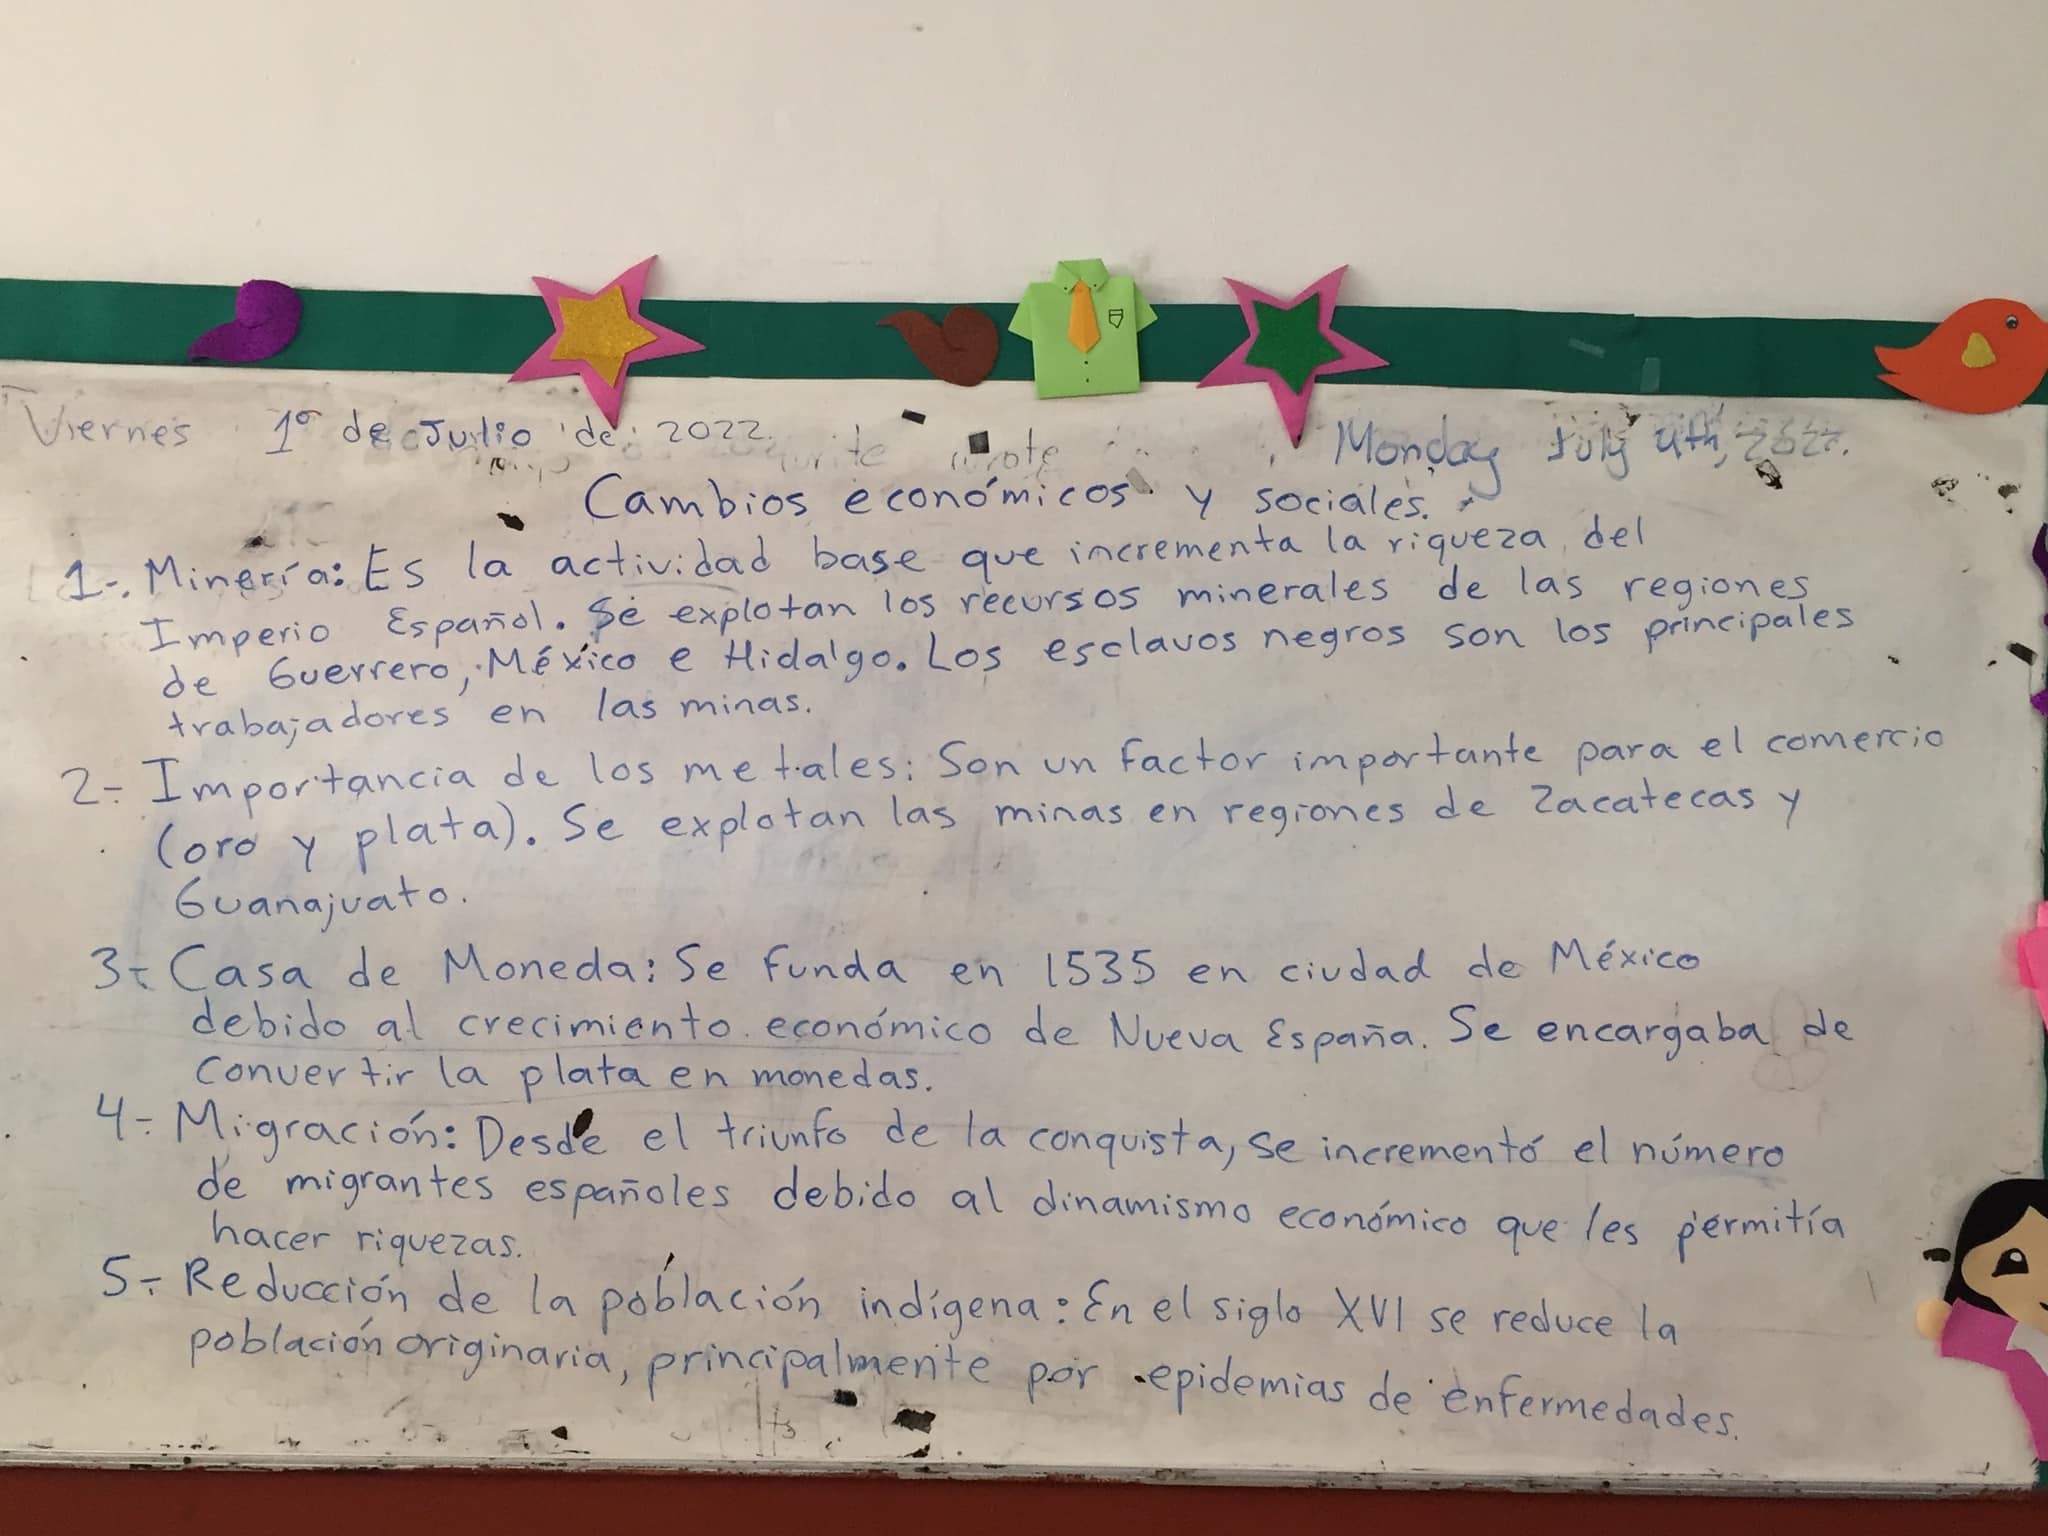 Viernes 1º de Julio de 2022.
Monday July 4th, 2022.
write wrote
Cambios económicos y sociales.
1-. Minería: Es la actividad base que incrementa la riqueza del
Imperio Español. Se explotan los recursos minerales de las regiones
de Guerrero, México e Hidalgo. Los esclavos negros son los principales
trabajadores en las minas.
2-. Importancia de los metales: Son un factor importante para el comercio
(oro y plata). Se explotan las minas en regiones de Zacatecas y
Guanajuato.
3-. Casa de Moneda: Se funda en 1535 en ciudad de México
debido al crecimiento económico de Nueva España. Se encargaba de
convertir la plata en monedas.
4-. Migración: Desde el triunfo de la conquista, se incrementó el número
de migrantes españoles debido al dinamismo económico que les permitía
hacer riquezas.
5-. Reducción de la población indígena: En el siglo XVI se reduce la
población originaria, principalmente por epidemias de enfermedades.